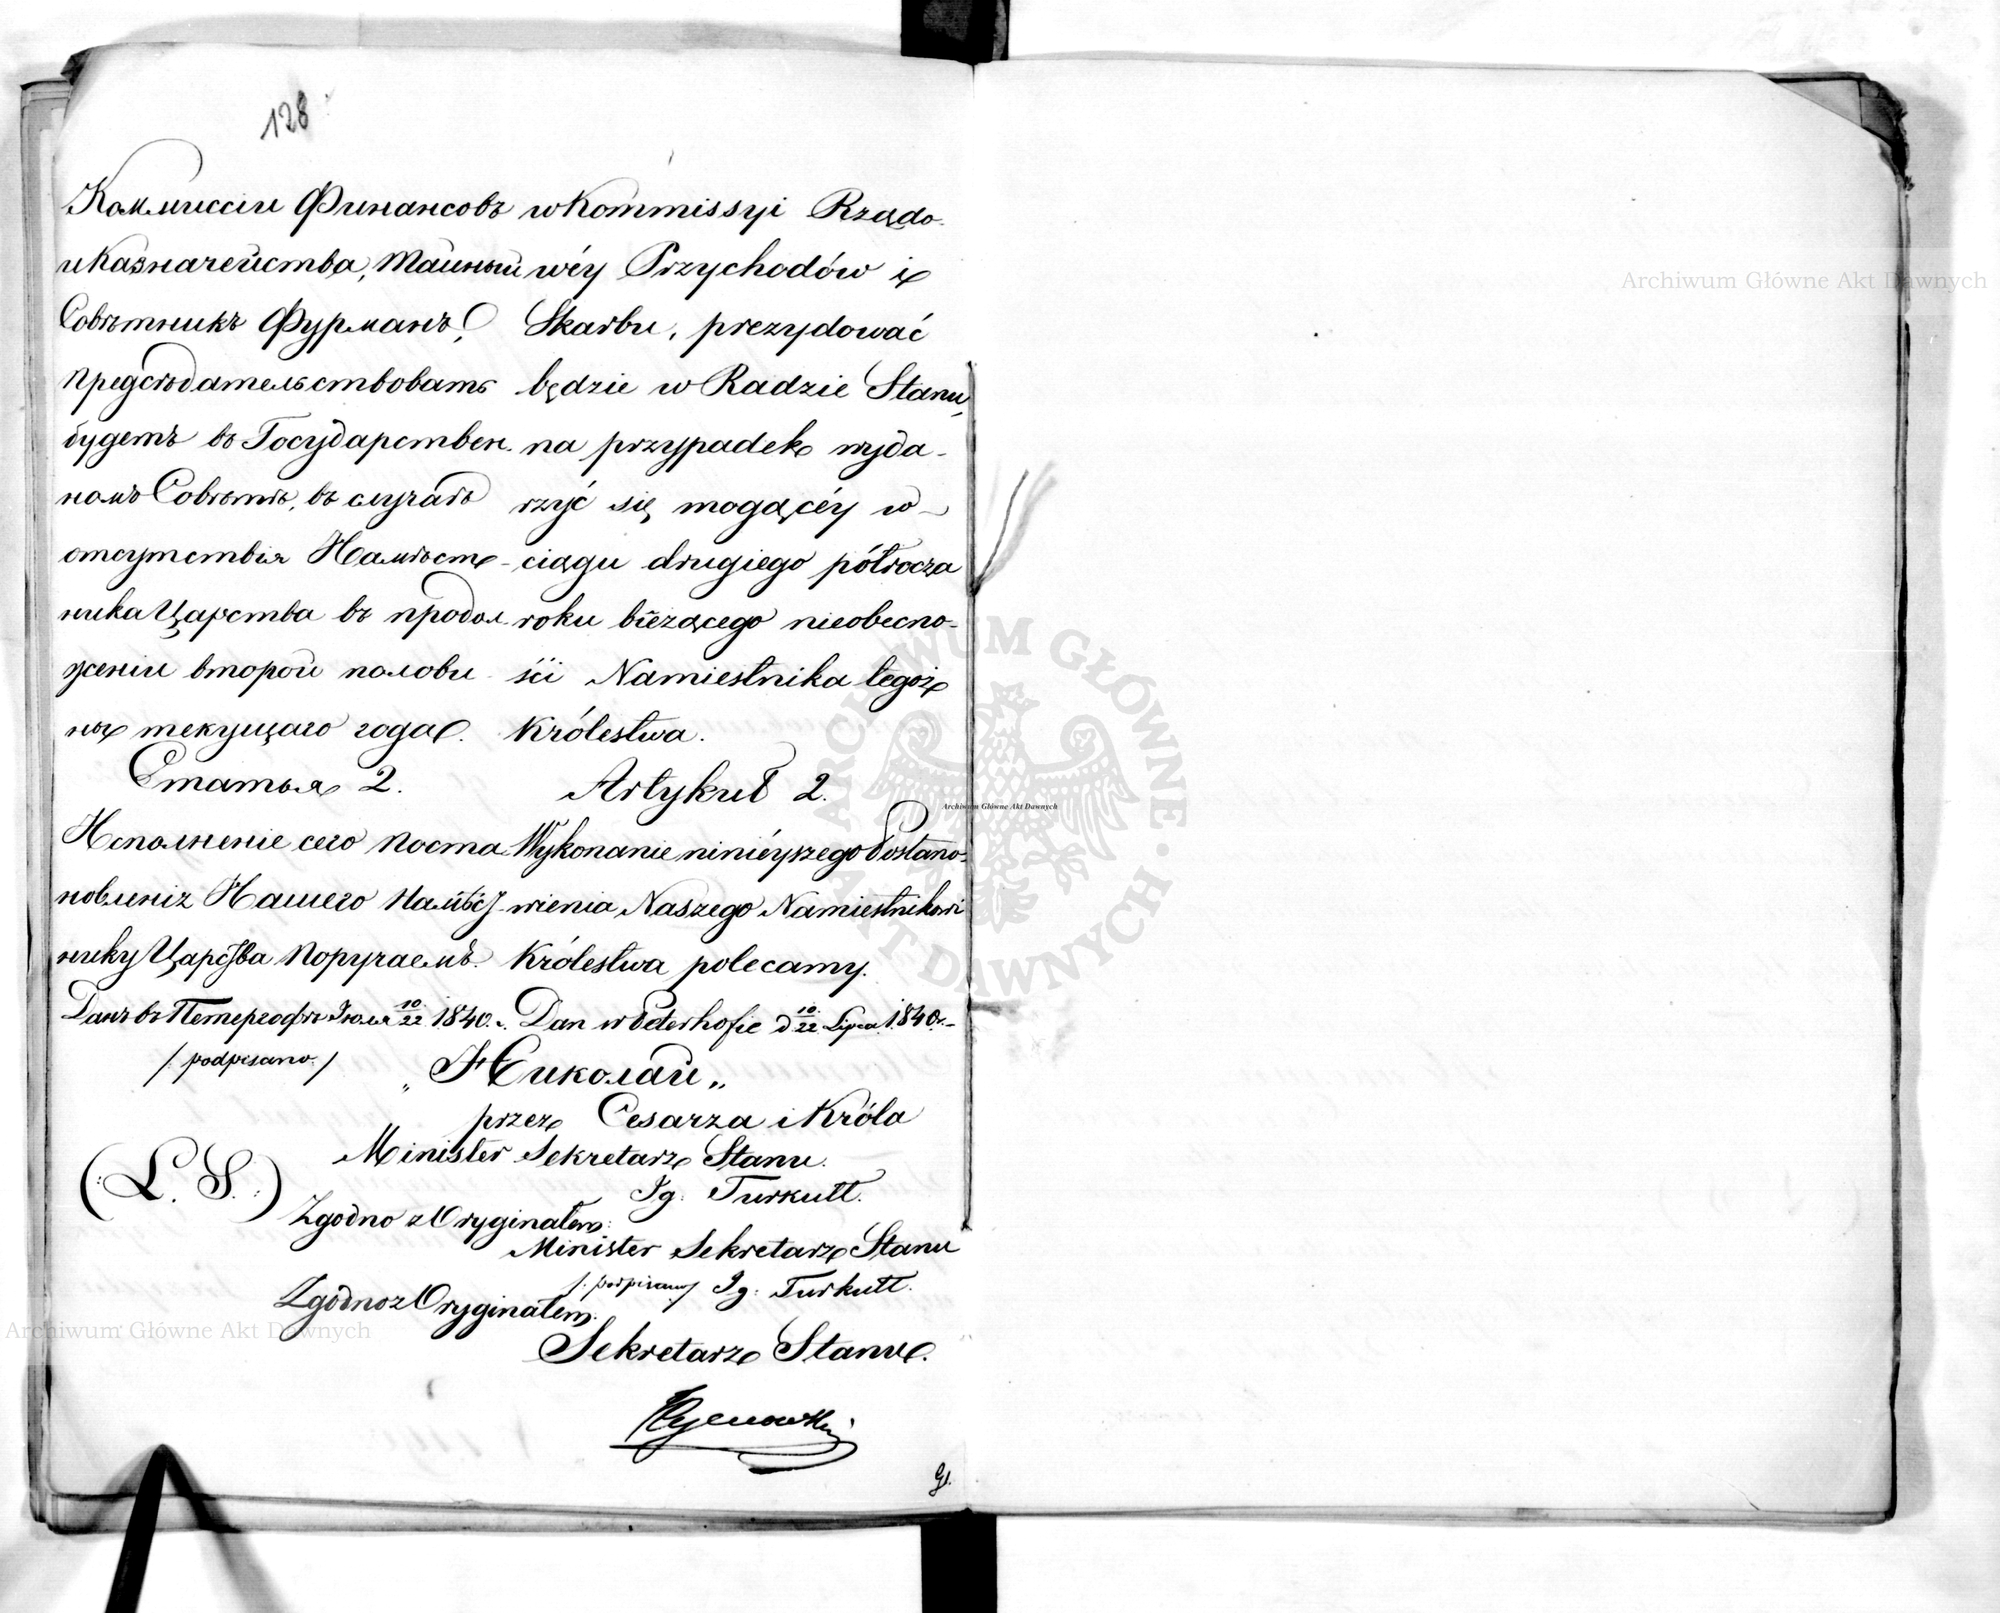 128
Коммиссіи Финансовъ
и Казначейства, Тайный
Совѣтникъ Фурманъ,
предсѣдательствовать
будетъ въ Государствен-
номъ Совѣтѣ, въ случаѣ
отсутствія Намѣст-
ника Царства въ продол-
женіи второй полови-
ны текущаго года.
Статья 2.
Исполненіе сего Поста-
новленія Нашего Намѣст-
нику Царства поручаемъ.
Данъ въ Петергофѣ Іюля 10/22 1840 г.
w Kommissyi Rządo-
wéy Przychodów i
Skarbu, prezydować
będzie w Radzie Stanu,
na przypadek wyda-
rzyć się mogącéy w
ciągu drugiego półrocza
roku bieżącego nieobecno-
ści Namiestnika tegoż
Królestwa.
Artykuł 2.
Wykonanie ninieyszego Postano-
wienia Naszego Namiestnikowi
Królestwa polecamy.
Dan w Peterhofie d 10/22 Lipca 1840 r.
/: podpisano :/
„Николай„
przez Cesarza i Króla
Minister Sekretarz Stanu.
(: L. S. :)
Ig: Turkułł.
Zgodno z Oryginałem:
Minister Sekretarz Stanu
/: podpisany Ig: Turkułł.
Zgodno z Oryginałem:
Sekretarz Stanu.
Archiwum Główne Akt Dawnych
Archiwum Główne Akt Dawnych
Archiwum Główne Akt Dawnych
ARCHIWUM GŁÓWNE AKT DAWNYCH